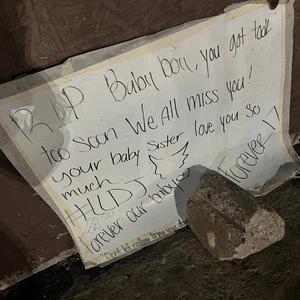 RIP Baby boy, you got took
too soon We All miss you!
your baby Sister love you so
much
#LLDJ Forever 17
Forever our baby
"Don't let